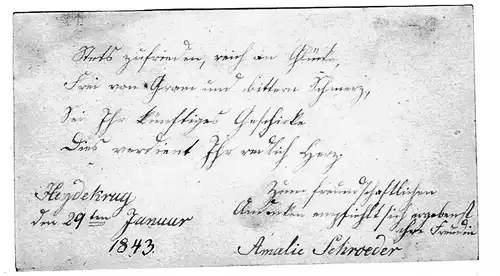 Stets zufrieden, reich an Glücke,
Frei von Gram und bittern Schmerz,
Sei Ihr künftiges Geschicke
Dies verdient Ihr redlich Herz.
Heydekrug
den 29ten Januar
1843.
Zum freundschaftlichen
Andenken empfiehlt sich ergebenst
ihre Freundin
Amalie Schroeder